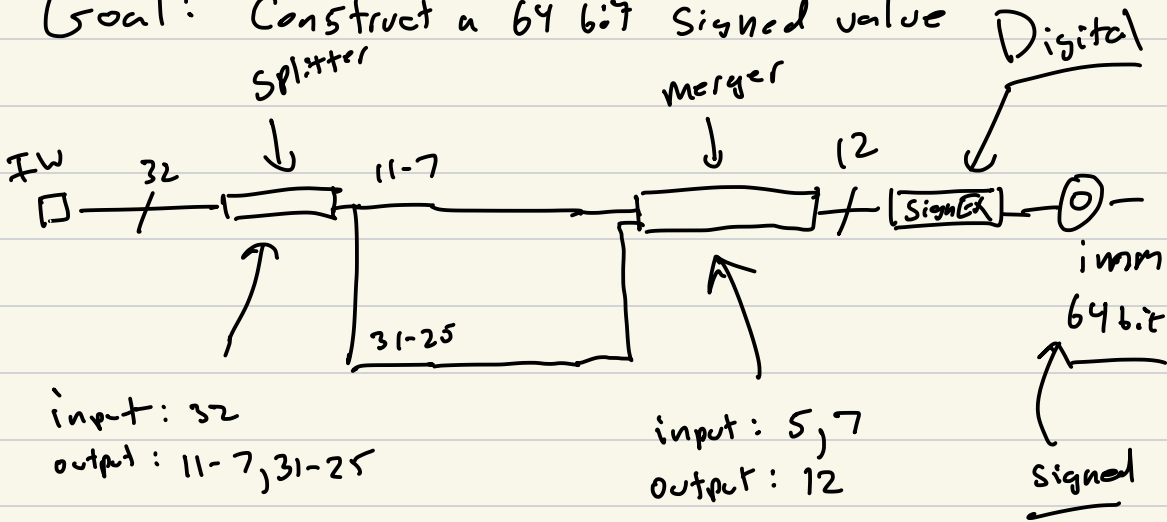 Goal: Construct a 64 bit Signed value
splitter
merger
Digital
IW
32
11-7
12
SignEX
imm
64 bit
31-25
input: 32
output: 11-7, 31-25
input: 5, 7
output: 12
signed